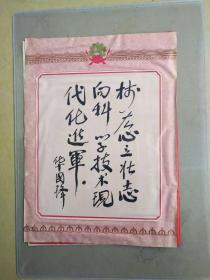 树雄心立壮志
向科学技术现
代化进軍。
华国锋